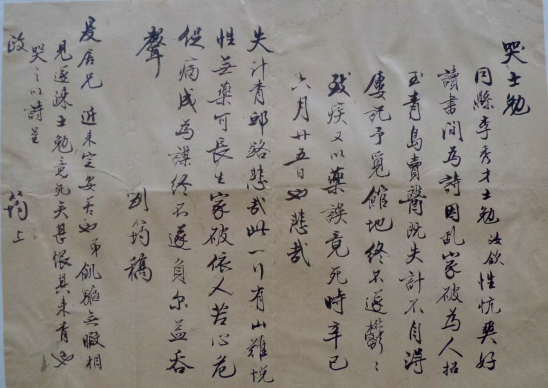 哭士勉
同縣李秀才士勉汝欽性忼爽好
讀書間為詩因乱家破為人招
至青島賣醫既失計不自得
屢託予覓館地終不遂鬱〻
致疾又以藥誤竟死時辛巳
六月廿五日也悲哉
失計青郵路悲哉此一行有山難悦
性無藥可長生家破依人苦心危
促病成為謀終不遂負尔益吞
聲
劉筠稿
廷居兄 近来定安否也弟飢驅無暇相
見遂踈士勉竟死夭甚恨其未有也
哭之以詩呈
政
筠上